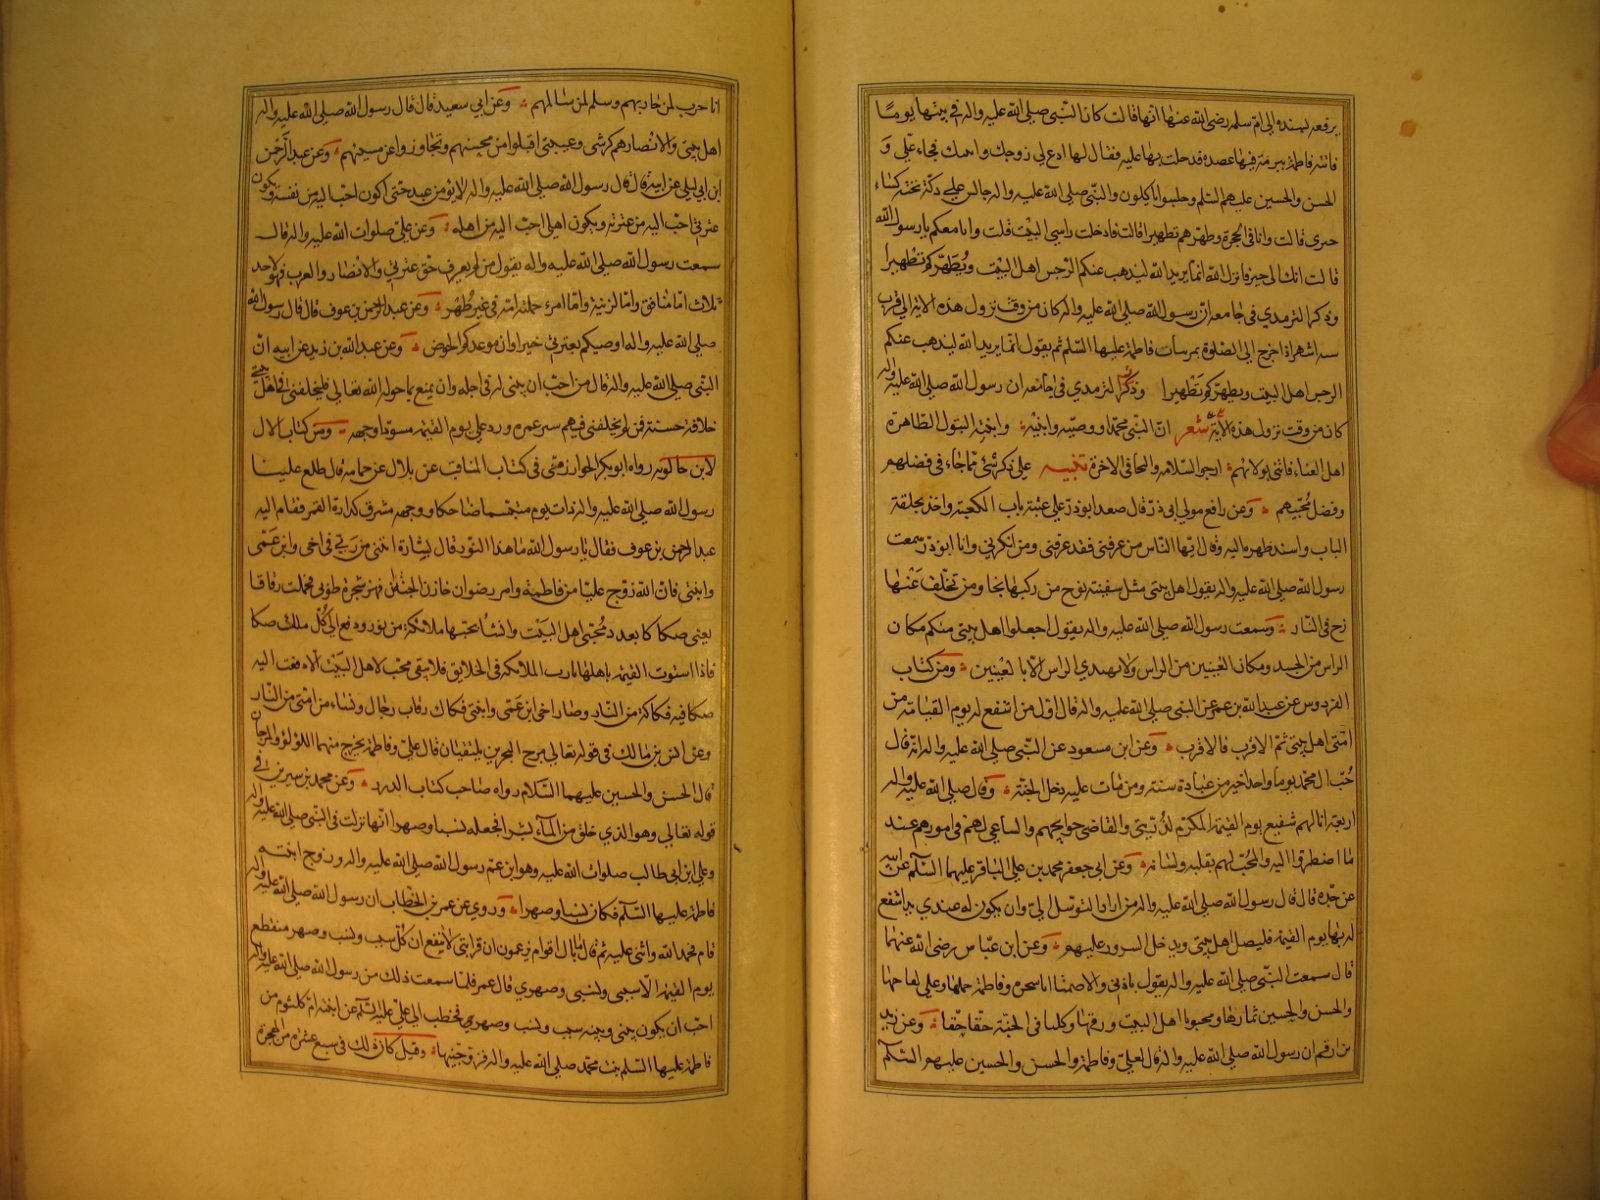 يرفعه بسنده الى ام سلمه رضى الله عنها انها قالت كان النبى صلى الله عليه واله في بيتها يوما
فاتته فاطمة ببرمة فيها عصيده قد حلت بها عليه فقال لها ادعى لى زوجك وابنيك فجاء على و
الحسن والحسين عليهم السلم وجلسوا ياكلون والنبى صلى الله عليه واله جالس على دكة تحته كساء
خيبرى قالت وانا فى الحجرة وطهرهم تطهيرا قالت فادخلت راسى البيت قلت وانا معكم يا رسول الله
قالت انك الى خير فانزل الله انما يريد الله ليذهب عنكم الرجس اهل البيت ويطهركم تطهيرا
وذكر الترمدي في جامعه ان رسول الله صلى الله عليه واله كان من وقت نزول هذه الاية الى قرب
سته اشهر اذا خرج الى الصلوة يمر ببات فاطمة عليها السلم ثم يقول انما يريد الله ليذهب عنكم
الرجس اهل البيت ويطهركم تطهيرا وذكر الترمدي فى جامعه ان رسول الله صلى الله عليه واله
كان من وقت نزول هذه الاية شعر ان النبى محمدا ووصيه وابنيه وابنته البتول الطاهرة
اهل العباء فانني بولائهم ارجوا السلامه والنجا فى الاخرة تنبيه على ذكر شئ مما جاء في فضلهم
وفضل محبيهم وعن رافع مولى ابى ذر قال صعد ابوذر على عتبة باب الكعبة واخذ بحلقة
الباب واسند ظهره اليه وقال ايها الناس من عرفنى فقد عرفنى ومن انكرني وانا ابوذر سمعت
رسول الله صلى الله عليه واله يقول اهل بيتى مثل سفينة نوح من ركبها نجا ومن تخلف عنها
زخ فى النار وسمعت رسول الله صلى الله عليه واله يقول اجعلوا اهل بيتى منكم مكان
الراس من الجسد ومكان العينين من الراس ولا يهتدي الراس الا بالعينين ومن كتاب
الفردوس عن عبد الله بن عمر عن النبى صلى الله عليه واله قال اول من اشفع له يوم القيامة من
امتى اهل بيتى ثم الاقرب فالاقرب وعن ابن مسعود عن النبى صلى الله عليه واله انه قال
حب ال محمد يوما واحدا خير من عبادة سنة ومن مات عليه دخل الجنة وقال صلى الله عليه واله
اربعة انا لهم شفيع يوم القيمة المكرم لذريتى والقاضى حوايجهم والساعى لهم فى امورهم عند
ما اضطروا اليه والمحب لهم بقلبه ولسانه وعن ابى جعفر محمد بن على الباقر عليهما السلم عن ابيه
عن جده قال قال رسول الله صلى الله عليه واله من اراد التوسل الى وان يكون له عندي يد اشفع
له بها يوم القيمة فليصل اهل بيتى ويدخل السرور عليهم وعن ابن عباس رضى الله عنهما
قال سمعت النبى صلى الله عليه واله يقول باذنى والا صمتا انا شجرة وفاطمة حملها وعلى لقاحها
والحسن والحسين ثمارها ومحبوا اهل البيت ورقها وكلنا فى الجنة حقا حقا وعن زيد
بن ارقم ان رسول الله صلى الله عليه واله قال لعلى وفاطمة والحسن والحسين عليهم السلم
انا حرب لمن حاربهم وسلم لمن سالمهم وعن ابي سعيد قال قال رسول الله صلى الله عليه واله
اهل بيتى والانصار هم كرشى وعيبتى اقبلوا من محسنهم وتجاوزوا عن مسيئهم وعن عبد الرحمن
ابن ابى ليلى عن ابيه قال قال رسول الله صلى الله عليه واله لا يؤمن عبد حتى اكون احب اليه من نفسه ويكون
عترتي احب اليه من عترته ويكون اهلى احب اليه من اهله وعن على صلوات الله عليه واله قال
سمعت رسول الله صلى الله عليه واله يقول من لم يعرف حق عترتي والانصار والعرب فهو لاحد
ثلاث اما منافق واما لزنية واما امرء حملته امه في غير طهر وعن عبد الرحمن بن عوف قال قال رسول الله
صلى الله عليه واله اوصيكم بعترتي خيرا وان موعدكم الحوض وعن عبد الله بن زيد عن ابيه ان
النبى صلى الله عليه واله قال من احب ان ينسى له فى اجله وان يمتع بما خوله الله تعالى فليخلفنى فى اهل بيتى
خلافة حسنة فمن لم يخلفنى فيهم بتر عمره ورد على يوم القيمة مسودا وجهه ومن كتاب الال
لابن خالويه رواه ابو بكر الخوارزمى فى كتاب المناقب عن بلال عن حمامه قال طلع علينا
رسول الله صلى الله عليه واله ذات يوم متبسما ضاحكا ووجهه مشرق كدارة القمر فقام اليه
عبد الرحمن بن عوف فقال يا رسول الله ما هذا النور قال بشارة اتتنى من ربي فى اخى وابن عمى
وابنتى فان الله زوج عليا من فاطمة وامر رضوان خازن الجنان فهز شجرة طوبى فحملت رقاقا
يعنى صكاكا بعدد محبى اهل البيت وانشا تحتها ملائكة من نور ودفع الى كل ملك صكا
فاذا استوت القيمة باهلها نادت الملائكة فى الخلايق فلا يبقى محب لاهل البيت الا دفعت اليه
صكا فيه فكاكه من النار وصار اخى ابن عمى وابنتى فكاك رقاب رجال ونساء من امتى من النار
وعن انس بن مالك فى قوله تعالى مرج البحرين يلتقيان قال على وفاطمة يخرج منهما اللؤلؤ والمرجان
قال الحسن والحسين عليهما السلام رواه صاحب كتاب الدرر وعن محمد بن سيرين فى
قوله تعالى وهو الذي خلق من الماء بشرا فجعله نسبا وصهرا انها نزلت فى النبى صلى الله عليه واله
وعلى ابن ابى طالب صلوات الله عليه وهو ابن عم رسول الله صلى الله عليه واله وزوج ابنته
فاطمة عليها السلم فكان نسبا وصهرا وروي عن عمر بن الخطاب ان رسول الله صلى الله عليه واله
قام فحمد الله واثنى عليه ثم قال ما بال اقوام يزعمون ان قرابتى لا ينفع ان كل سبب ونسب وصهر منقطع
يوم القيمة الا سببى ونسبى وصهري قال عمر فلما سمعت ذلك من رسول الله صلى الله عليه واله
احب ان يكون بينى وبينه سبب ونسب وصهر فخطب الى على عليه السلم عن ابنته ام كلثوم من
فاطمة عليها السلم بنت محمد صلى الله عليه واله فزوجنيها وقيل كان ذلك فى سبع عشرة من الهجرة